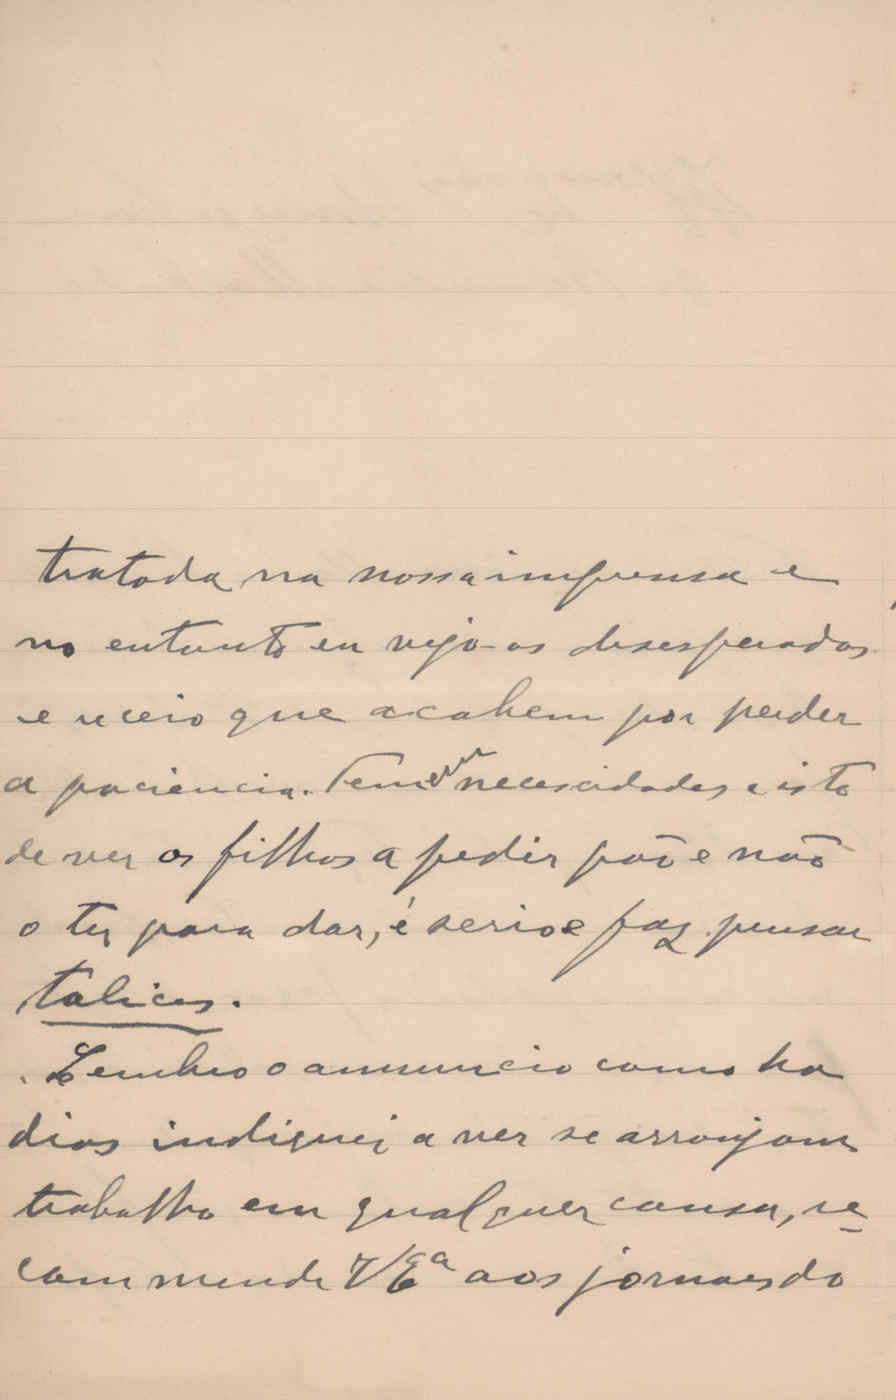 tratada na nossa imprensa e
no entanto eu vejo-os desesperados
e receio que acabem por perder
a paciencia. Tem necescidades e isto
de ver os filhos a pedir pão e não
o ter para dar, é serio e faz pensar
talices.
Lembro o annuncio como ha
dias indiquei a ver se arranjam
trabalho em qualquer cousa, re-
commende V/Eª aos jornaes do